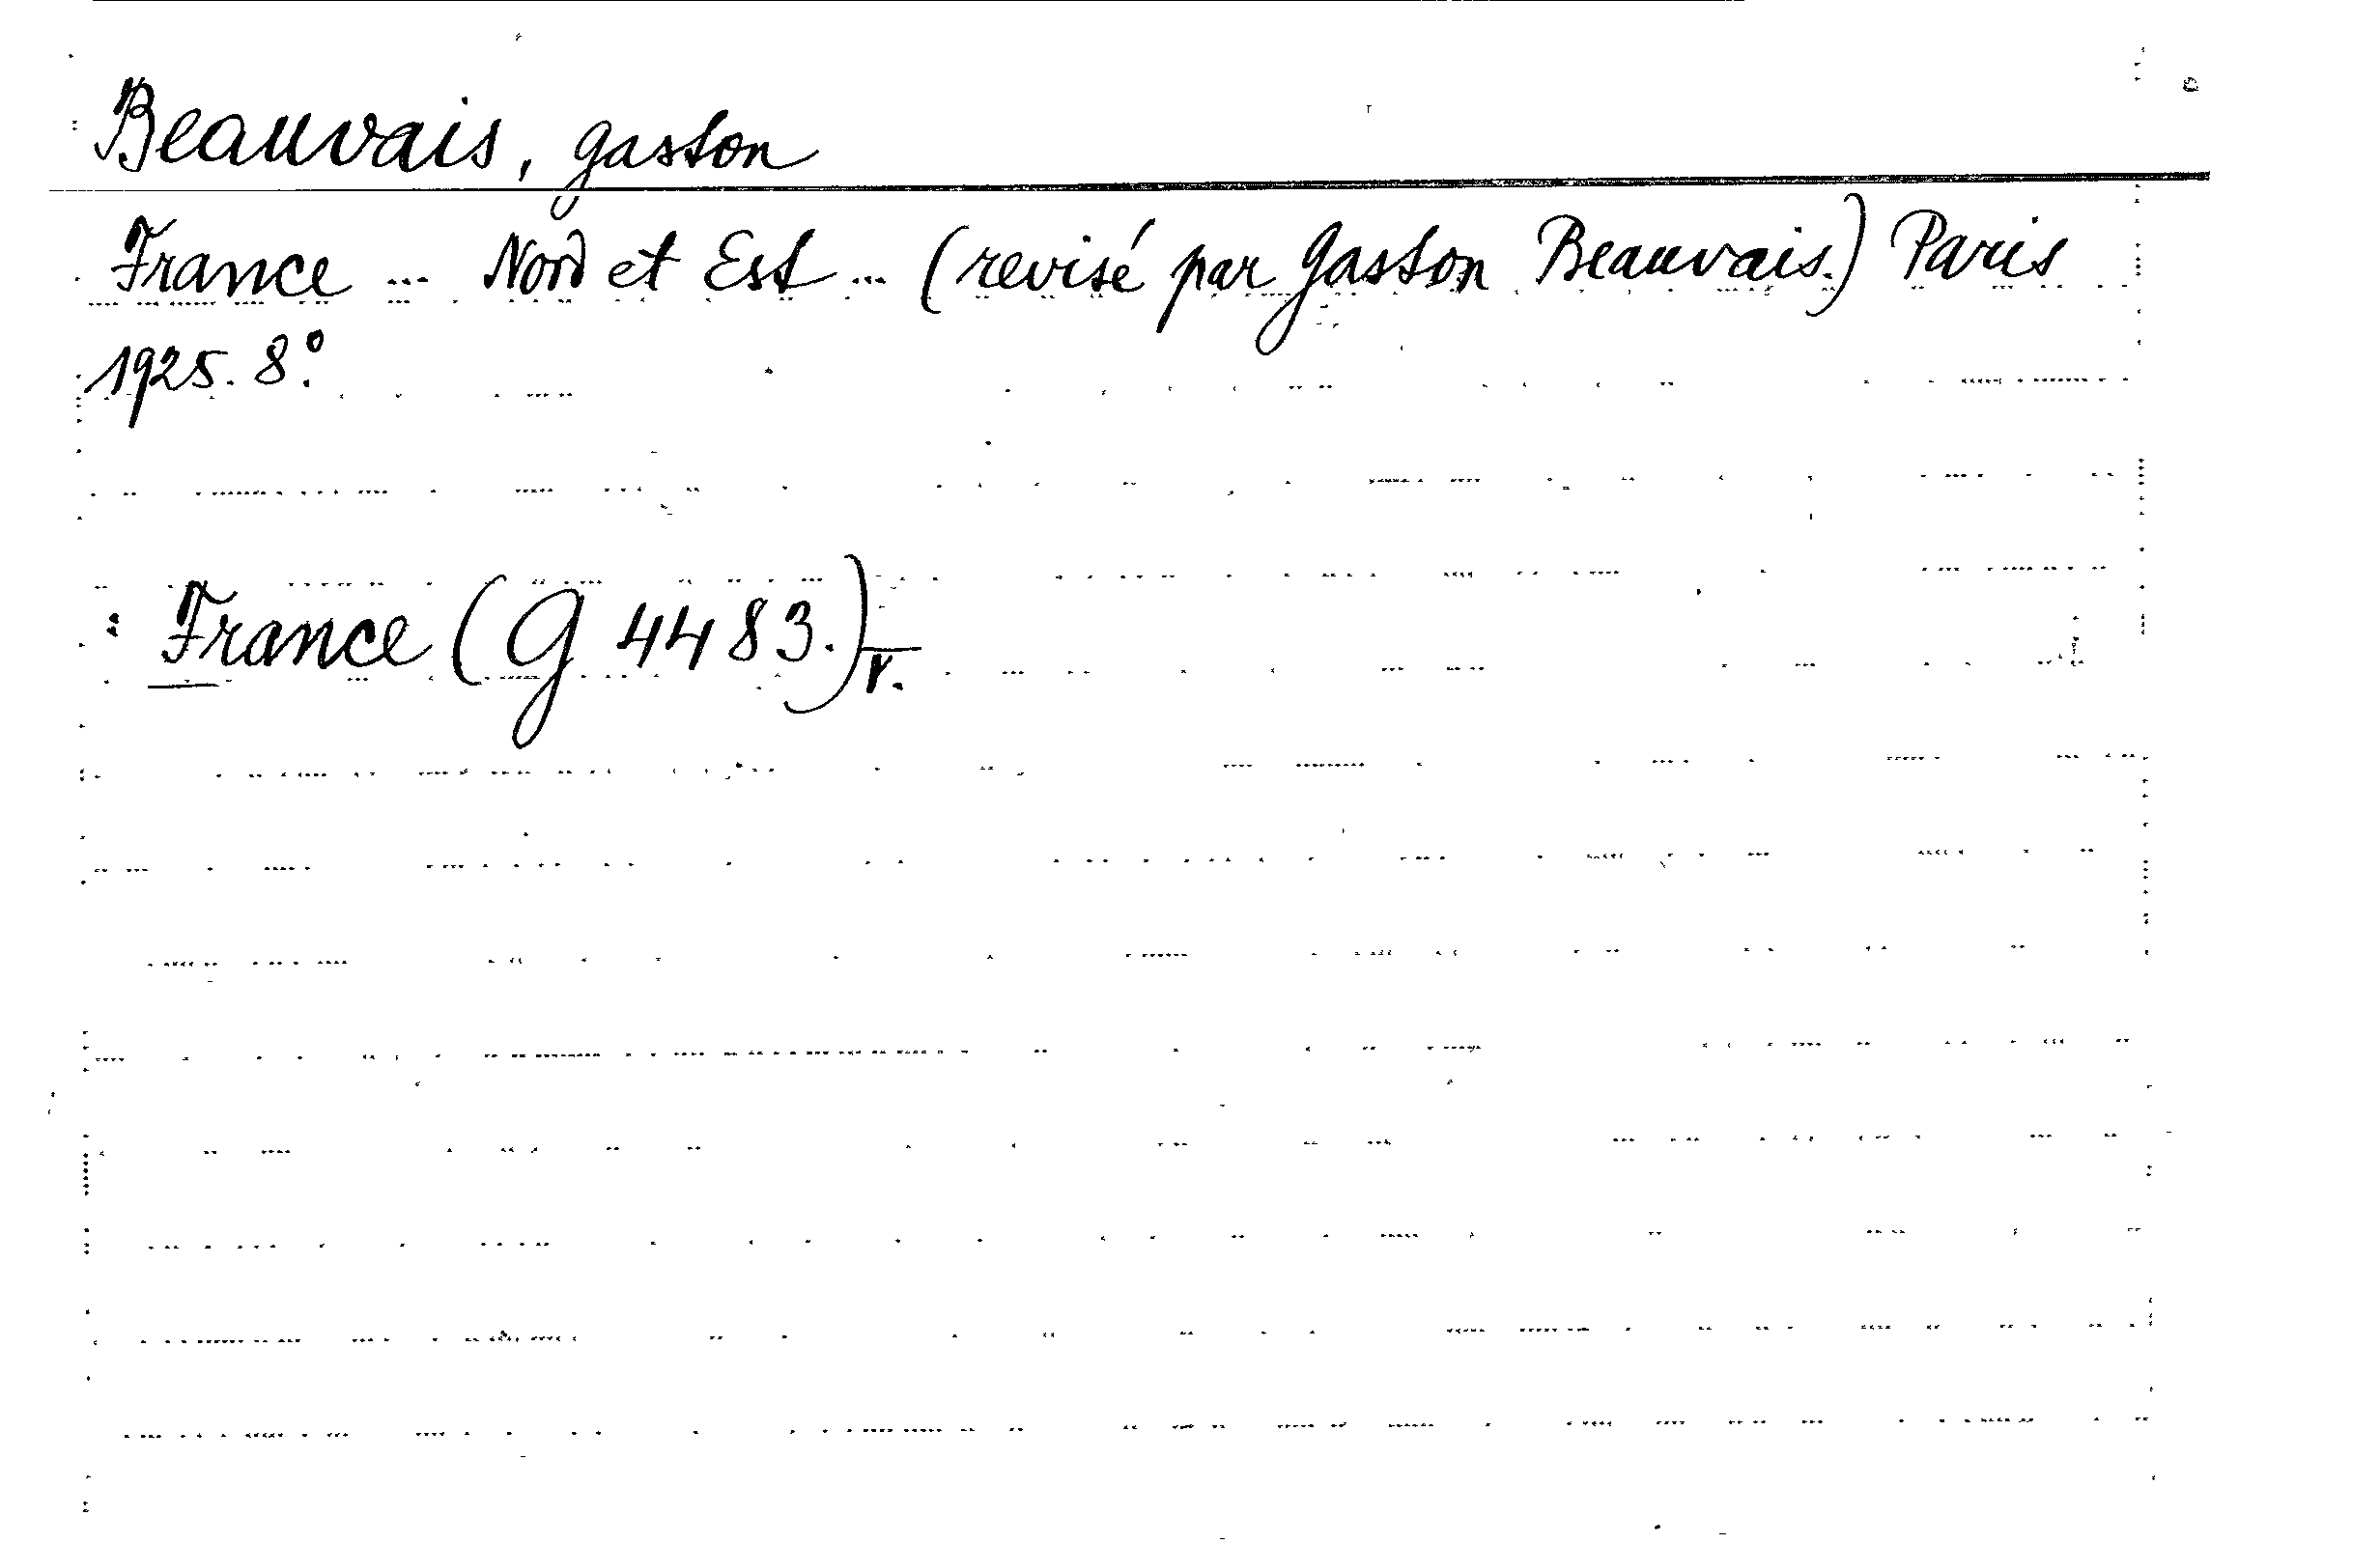 Beauvais, Gaston
France ... Nord et Est ... (revisé par Gaston Beauvais.) Paris
1925. 8°.
: France (G 4483.) V.